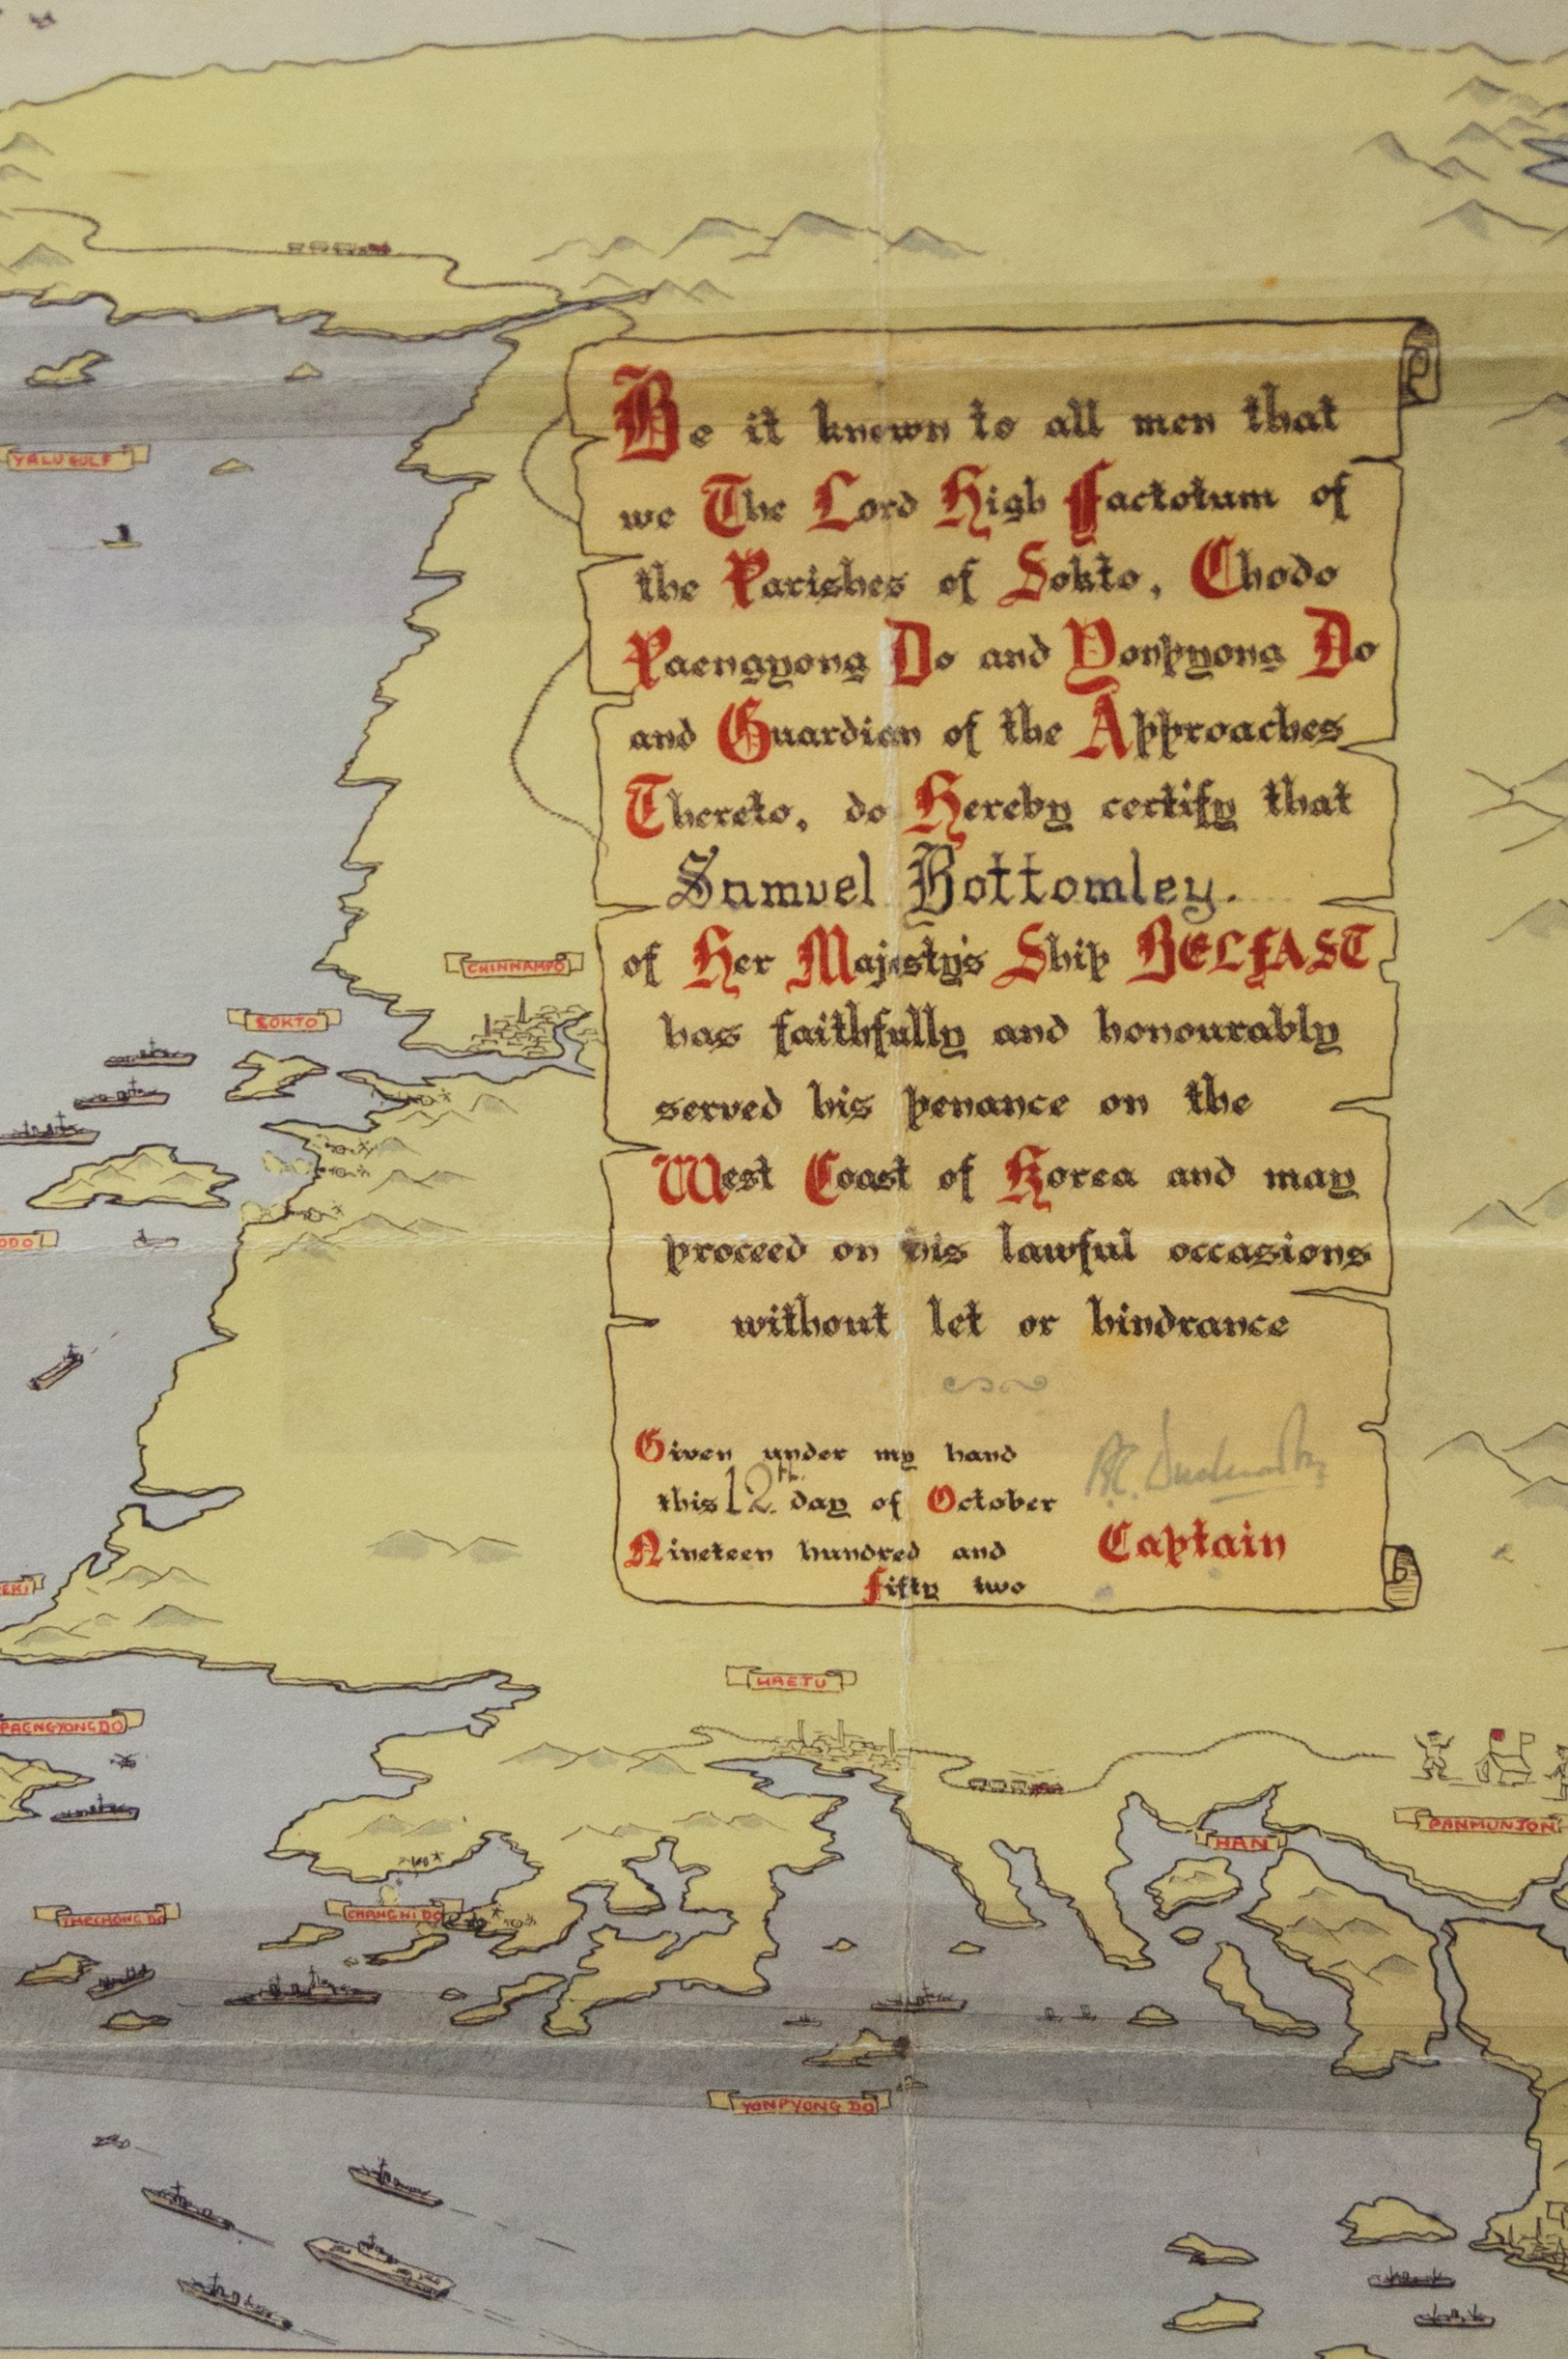 YALU GULF
Be it known to all men that
we The Lord High Factotum of
the Parishes of Sokto, Chodo
Paengyong Do and Yonpyong Do
and Guardian of the Approaches
Thereto, do Hereby certify that
Samuel Bottomley.
of Her Majesty's Ship BELFAST
has faithfully and honourably
served his penance on the
West Coast of Korea and may
proceed on his lawful occasions
without let or hindrance
Given under my hand
this 12th. day of October
Nineteen hundred and
Fifty two
Captain
CHINNAMPO
SOKTO
HAEJU
PAENGYONG DO
PANMUNJON
HAN
CHANG NI DO
YONPYONG DO